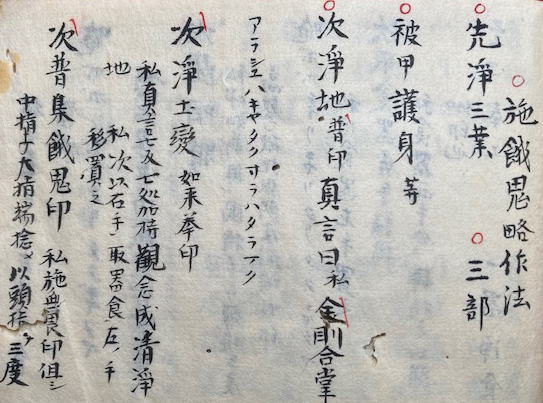 施餓鬼略作法
先淨三業 三部
被甲護身等
次淨地 普印真言曰 私金剛合掌
アラジュハキャタクサラハタラマク
次淨土變 如来拳印
私真言七反七処加持觀念成清淨
地 私次以右手取器食左ノ手
移置之
次普集餓鬼印 私施無畏印但シ
中指ト大指端捻〻以頭指ヲ三度